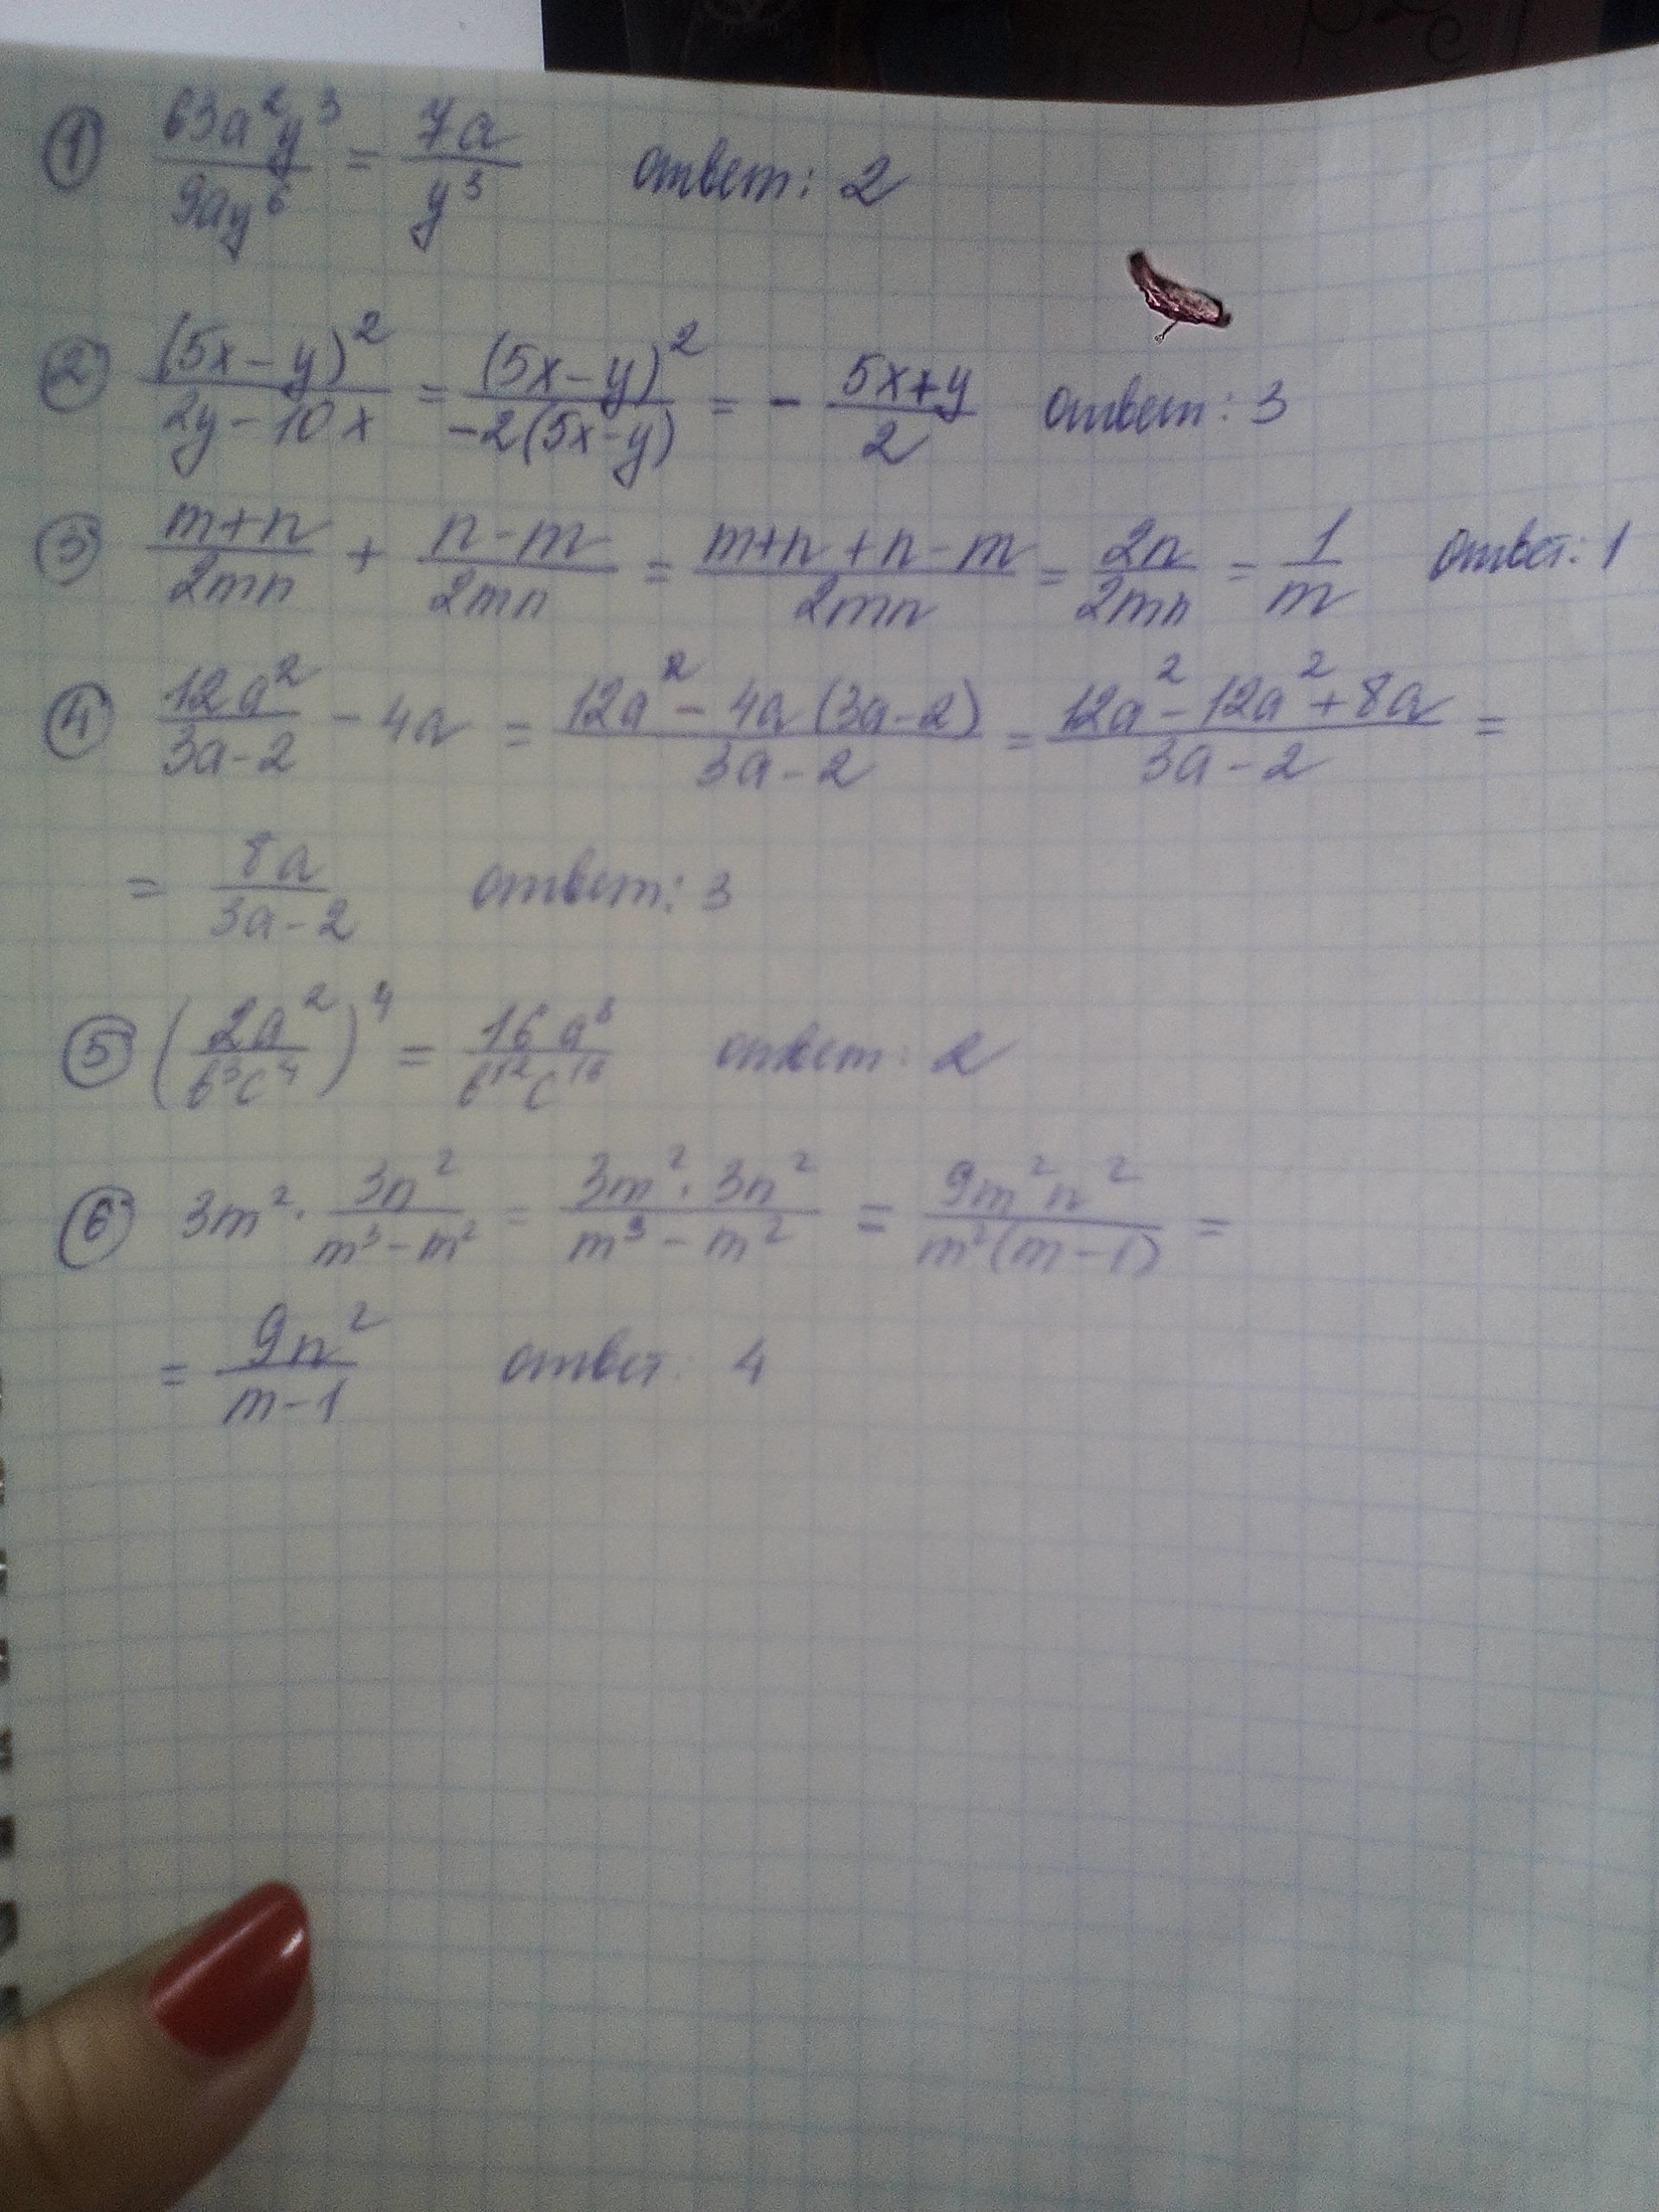 ① 63a²y³/9ay⁶ = 7a/y³ ответ: 2
② (5x-y)²/2y-10x = (5x-y)²/-2(5x-y) = - 5x+y/2 ответ: 3
③ m+n/2mn + n-m/2mn = m+n+n-m/2mn = 2n/2mn = 1/m ответ: 1
④ 12a²/3a-2 - 4a = 12a²-4a(3a-2)/3a-2 = 12a²-12a²+8a/3a-2 =
= 8a/3a-2 ответ: 3
⑤ (2a²/b³c⁴)⁴ = 16a⁸/b¹²c¹⁶ ответ: 2
⑥ 3m² · 3n²/m³-m² = 3m²·3n²/m³-m² = 9m²n²/m²(m-1) =
= 9n²/m-1 ответ: 4